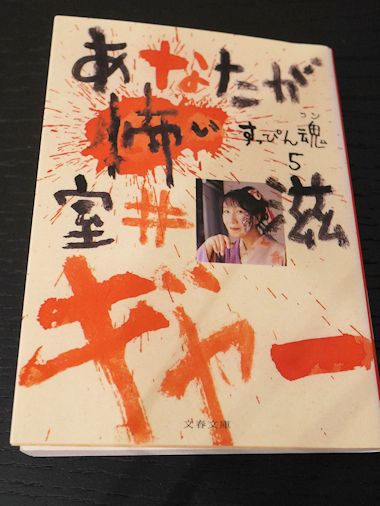 あなたが
怖い
すっぴん魂
コン
5
室井滋
ギャー
文春文庫